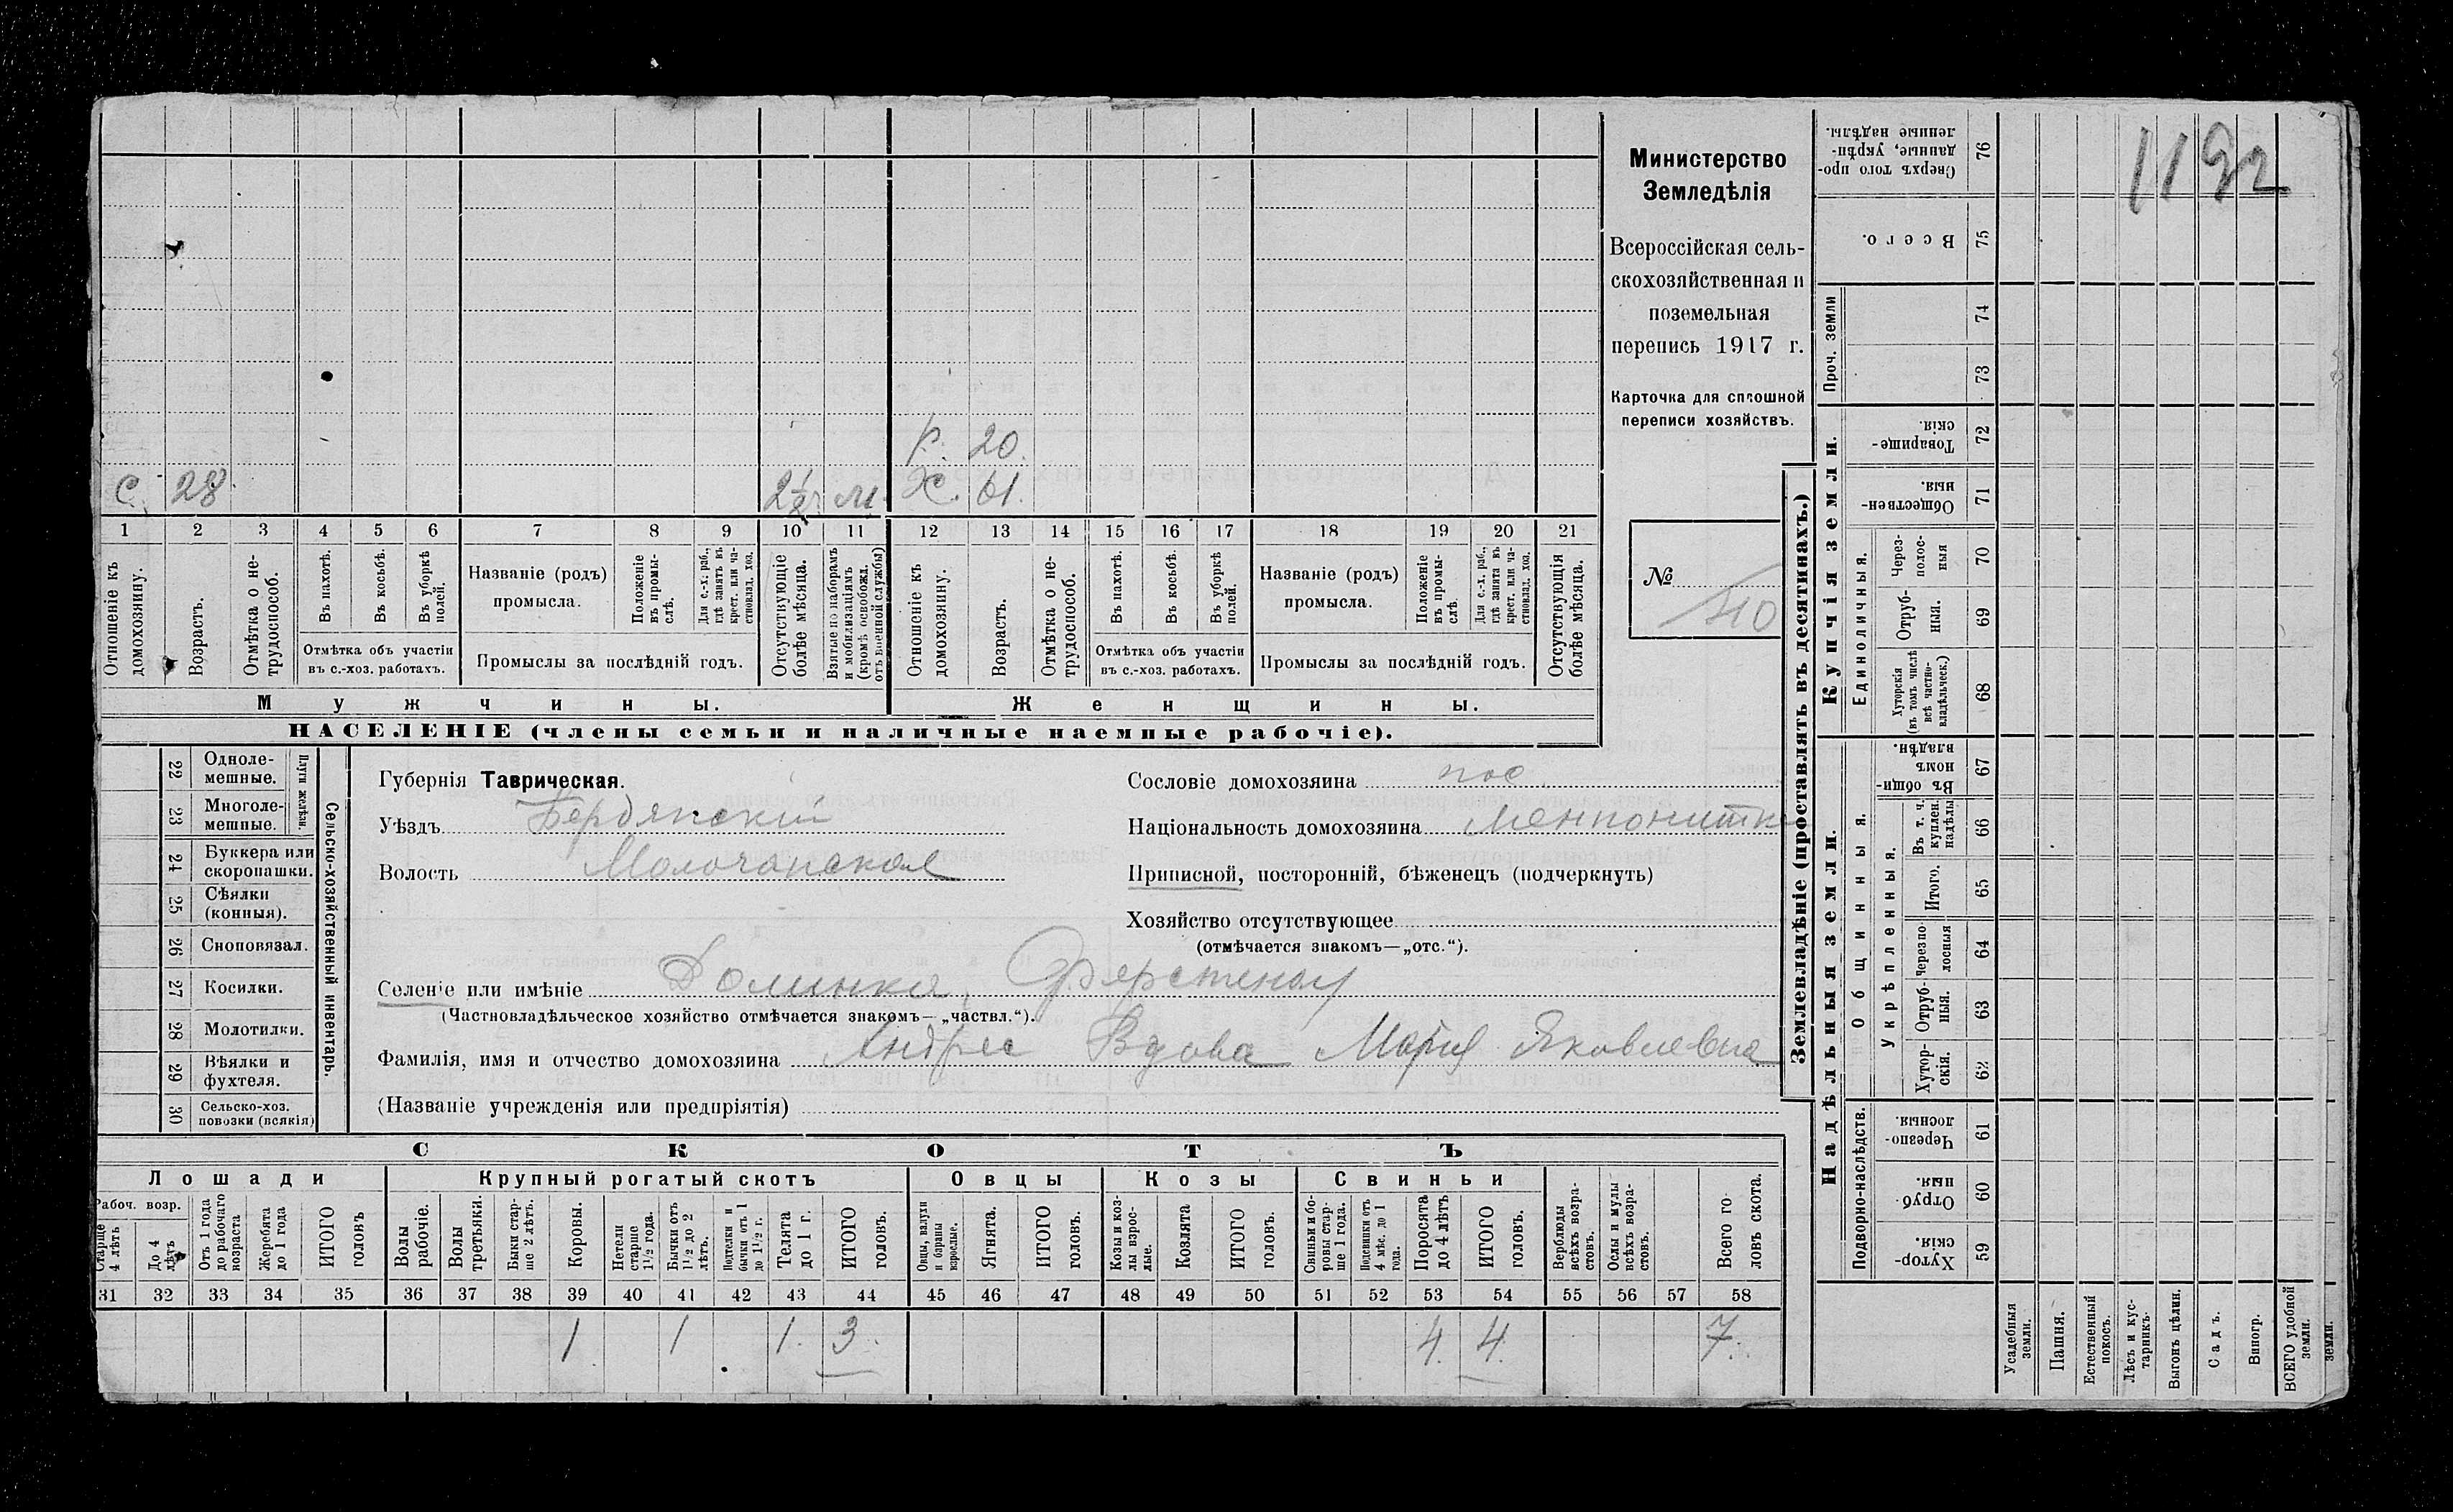 Министерство
Земледѣлія
Всероссійская сель-
скохозяйственная и
поземельная
перепись 1917 г.
Карточка для сплошной
переписи хозяйствъ.
№
1192
Р. 20.
С. 28. 2½ г. М. Ж. 61.
1 2 3 4 5 6 7 8 9 10 11 12 13 14 15 16 17 18 19 20 21
Отношеніе къ домохозяину.
Возрастъ.
Отмѣтка о не-трудоспособ.
Въ пахотѣ.
Въ косьбѣ.
Въ уборкѣ полей.
Отмѣтка объ участіи
въ с.-хоз. работахъ.
Названіе (родъ)
промысла.
Положеніе въ промы-слѣ.
Для с.-х. раб., гдѣ занятъ въ крест. или ча-стновлад. хоз.
Промыслы за послѣдній годъ.
Отсутствующіе болѣе мѣсяца.
Взятые по наборамъ и мобилизаціямъ (кромѣ освобожд. отъ военной службы)
Отношеніе къ домохозяину.
Возрастъ.
Отмѣтка о не-трудоспособ.
Въ пахотѣ.
Въ косьбѣ.
Въ уборкѣ полей.
Отмѣтка объ участіи
въ с.-хоз. работахъ.
Названіе (родъ)
промысла.
Положеніе въ промы-слѣ.
Для с.-х. раб., гдѣ занята въ крест. или ча-стновлад. хоз.
Промыслы за послѣдній годъ.
Отсутствующія болѣе мѣсяца.
Мужчины.
Женщины.
НАСЕЛЕНІЕ (члены семьи и наличные наемные рабочіе).
22 Одноле-мешные.
23 Многоле-мешные.
Плуги желѣзн.
24 Буккера или скоропашки.
25 Сѣялки (конныя).
26 Сноповязал.
27 Косилки.
28 Молотилки.
29 Вѣялки и фухтеля.
30 Сельско-хоз. повозки (всякія)
Сельско-хозяйственный инвентарь.
Губернія Таврическая.
Уѣздъ Бердянскій
Волость Молочанская
Сословіе домохозяина пос.
Національность домохозяина Менонитка
Приписной, посторонній, бѣженецъ (подчеркнуть)
Хозяйство отсутствующее
(отмѣчается знакомъ—„отс.“).
Селеніе или имѣніе Долинка, Фюрстенау
(Частновладѣльческое хозяйство отмѣчается знакомъ—„частвл.“).
Фамилія, имя и отчество домохозяина Андрес Вдова Мария Яковлевна
(Названіе учрежденія или предпріятія)
СКОТЪ
Лошади
Крупный рогатый скотъ
Овцы
Козы
Свиньи
Рабоч. возр.
Старше 4 лѣтъ
До 4 лѣтъ
Отъ 1 года до рабочаго возраста
Жеребята до 1 года
ИТОГО головъ
Волы рабочіе.
Волы третьяки.
Быки стар-ше 2 лѣтъ.
Коровы.
Нетели старше 1½ года.
Бычки отъ 1½ до 2 лѣтъ.
Подтелки и бычки отъ 1 до 1½ г.
Телята до 1 г.
ИТОГО головъ.
Овцы, валухи и бараны взрослые.
Ягнята.
ИТОГО головъ.
Козы и коз-лы взрос-лые.
Козлята
ИТОГО головъ.
Свиньи и бо-ровы стар-ше 1 года.
Подсвинки отъ 4 мѣс. до 1 года.
Поросята до 4 лѣтъ
ИТОГО головъ.
Верблюды всѣхъ возра-стовъ.
Ослы и мулы всѣхъ возра-стовъ.
Всего го-ловъ скота.
31 32 33 34 35 36 37 38 39 40 41 42 43 44 45 46 47 48 49 50 51 52 53 54 55 56 57 58
1 1 1. 3. 4. 4. 7.
Землевладѣніе (проставлять въ десятинахъ.)
Надѣльныя земли.
Купчія земли.
Проч. земли
Подворно-наслѣдств.
Общинныя.
Укрѣпленныя.
Единоличныя.
76 Сверхъ того про-данные, укрѣп-ленные надѣлы.
75 Всего.
74
73
72 Товарище-скія.
71 Обществен-ныя.
70 Через-полос-ныя
69 Отруб-ныя.
68 Хуторскія (въ томъ числѣ всѣ частно-владѣльческ.)
67 Въ общи-номъ владѣн.
66 Въ т. ч. куплен. надѣлы
65 Итого.
64 Черезпо-лосныя
63 Отруб-ныя.
62 Хутор-скія.
61 Черезпо-лосныя.
60 Отруб-ныя.
59 Хутор-скія.
Усадебныя земли.
Пашня.
Естественный покосъ.
Лѣсъ и кус-тарникъ.
Выгонъ цѣлин.
Садъ.
Виногр.
ВСЕГО удобной земли.
земли.